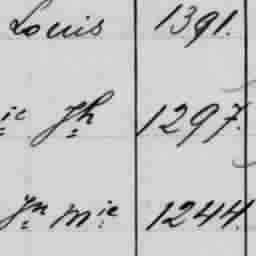 Louis 1391.
ie Jh 1297.
Jn Mie 1244.